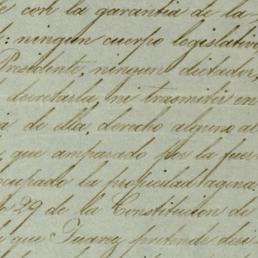 e con la garantia de la
: ningun cuerpo legislativo
Presidente, ningun dictador,
decretarla, ni trasmitir en
de ella, derecho alguno al
, que amparado por la fuer
ocupado la propiedad agena.
29 de la Constitucion de
que Juarez pretende